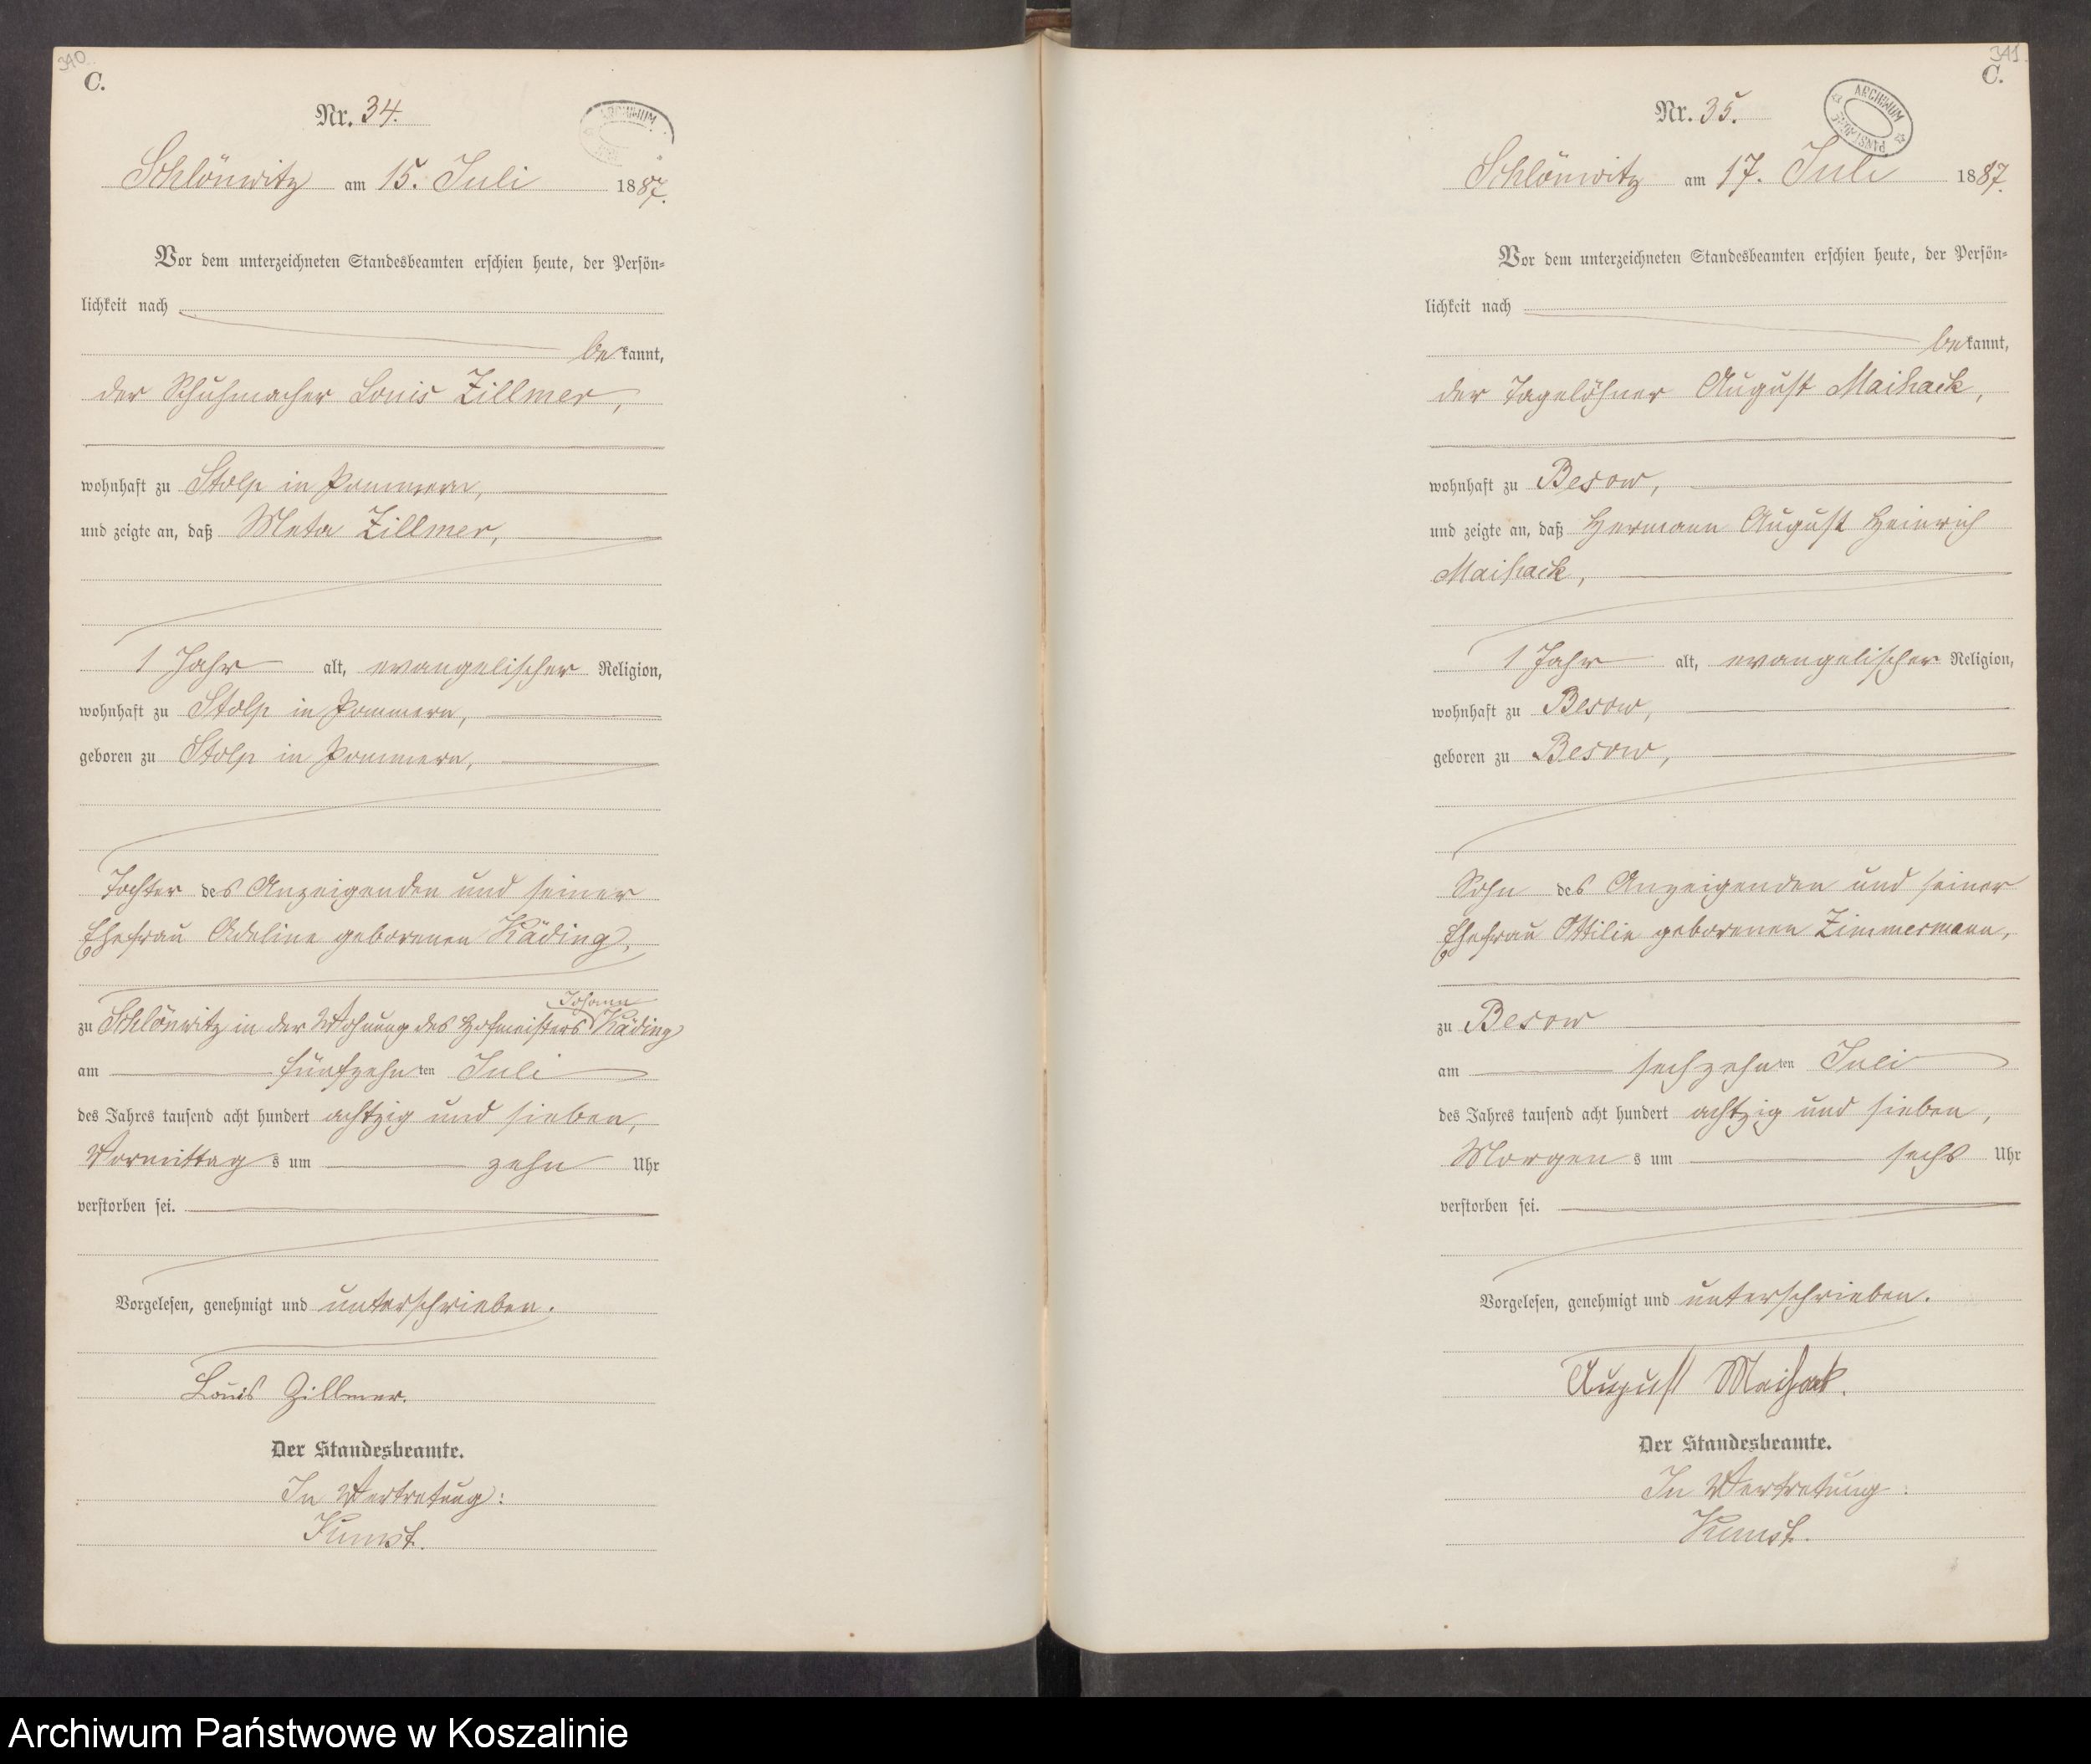 340
C.
Nr. 34.
ARCHIWUM
Schlönwitz am 15. Juli 1887.
Vor dem unterzeichneten Standesbeamten erschien heute, der Persön-
lichkeit nach
bekannt,
der Schuhmacher Louis Zillmer,
wohnhaft zu Stolp in Pommern,
und zeigte an, daß Meta Zillmer,
1 Jahr alt, evangelischer Religion,
wohnhaft zu Stolp in Pommern,
geboren zu Stolp in Pommern,
Tochter des Anzeigenden und seiner
Ehefrau Adeline geborenen Käding,
Johann
zu Schlönwitz in der Wohnung des Hofmeisters Käding
am fünfzehnten Juli
des Jahres tausend acht hundert achtzig und sieben,
Vormittags um zehn Uhr
verstorben sei.
Vorgelesen, genehmigt und unterschrieben.
Louis Zillmer.
Der Standesbeamte.
In Vertretung:
Kunst.
341
C.
Nr. 35.
ARCHIWUM PAŃSTWOWE
Schlönwitz am 17. Juli 1887.
Vor dem unterzeichneten Standesbeamten erschien heute, der Persön-
lichkeit nach
bekannt,
der Tagelöhner August Maihack,
wohnhaft zu Besow,
und zeigte an, daß Hermann August Heinrich
Maihack,
1 Jahr alt, evangelischer Religion,
wohnhaft zu Besow,
geboren zu Besow,
Sohn des Anzeigenden und seiner
Ehefrau Ottilie geborenen Zimmermann,
zu Besow
am sechzehnten Juli
des Jahres tausend acht hundert achtzig und sieben,
Morgens um sechs Uhr
verstorben sei.
Vorgelesen, genehmigt und unterschrieben.
August Maihack.
Der Standesbeamte.
In Vertretung:
Kunst.
Archiwum Państwowe w Koszalinie